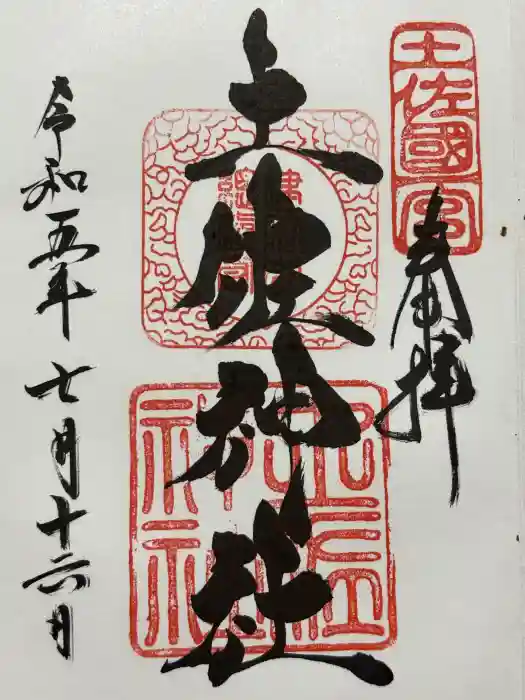 土佐國一宮
奉拝
土佐神社
土佐
神社
令和五年七月十六日